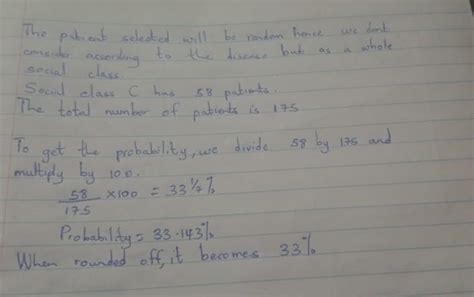 The patient selected will be random hence we dont
consider according to the disease but as a whole
social class.
Social class C has 58 patients.
The total number of patients is 175
To get the probability, we divide 58 by 175 and
multiply by 100.
58/175 ×100 = 33 1/7 %
Probability = 33.143%
When rounded off, it becomes 33%